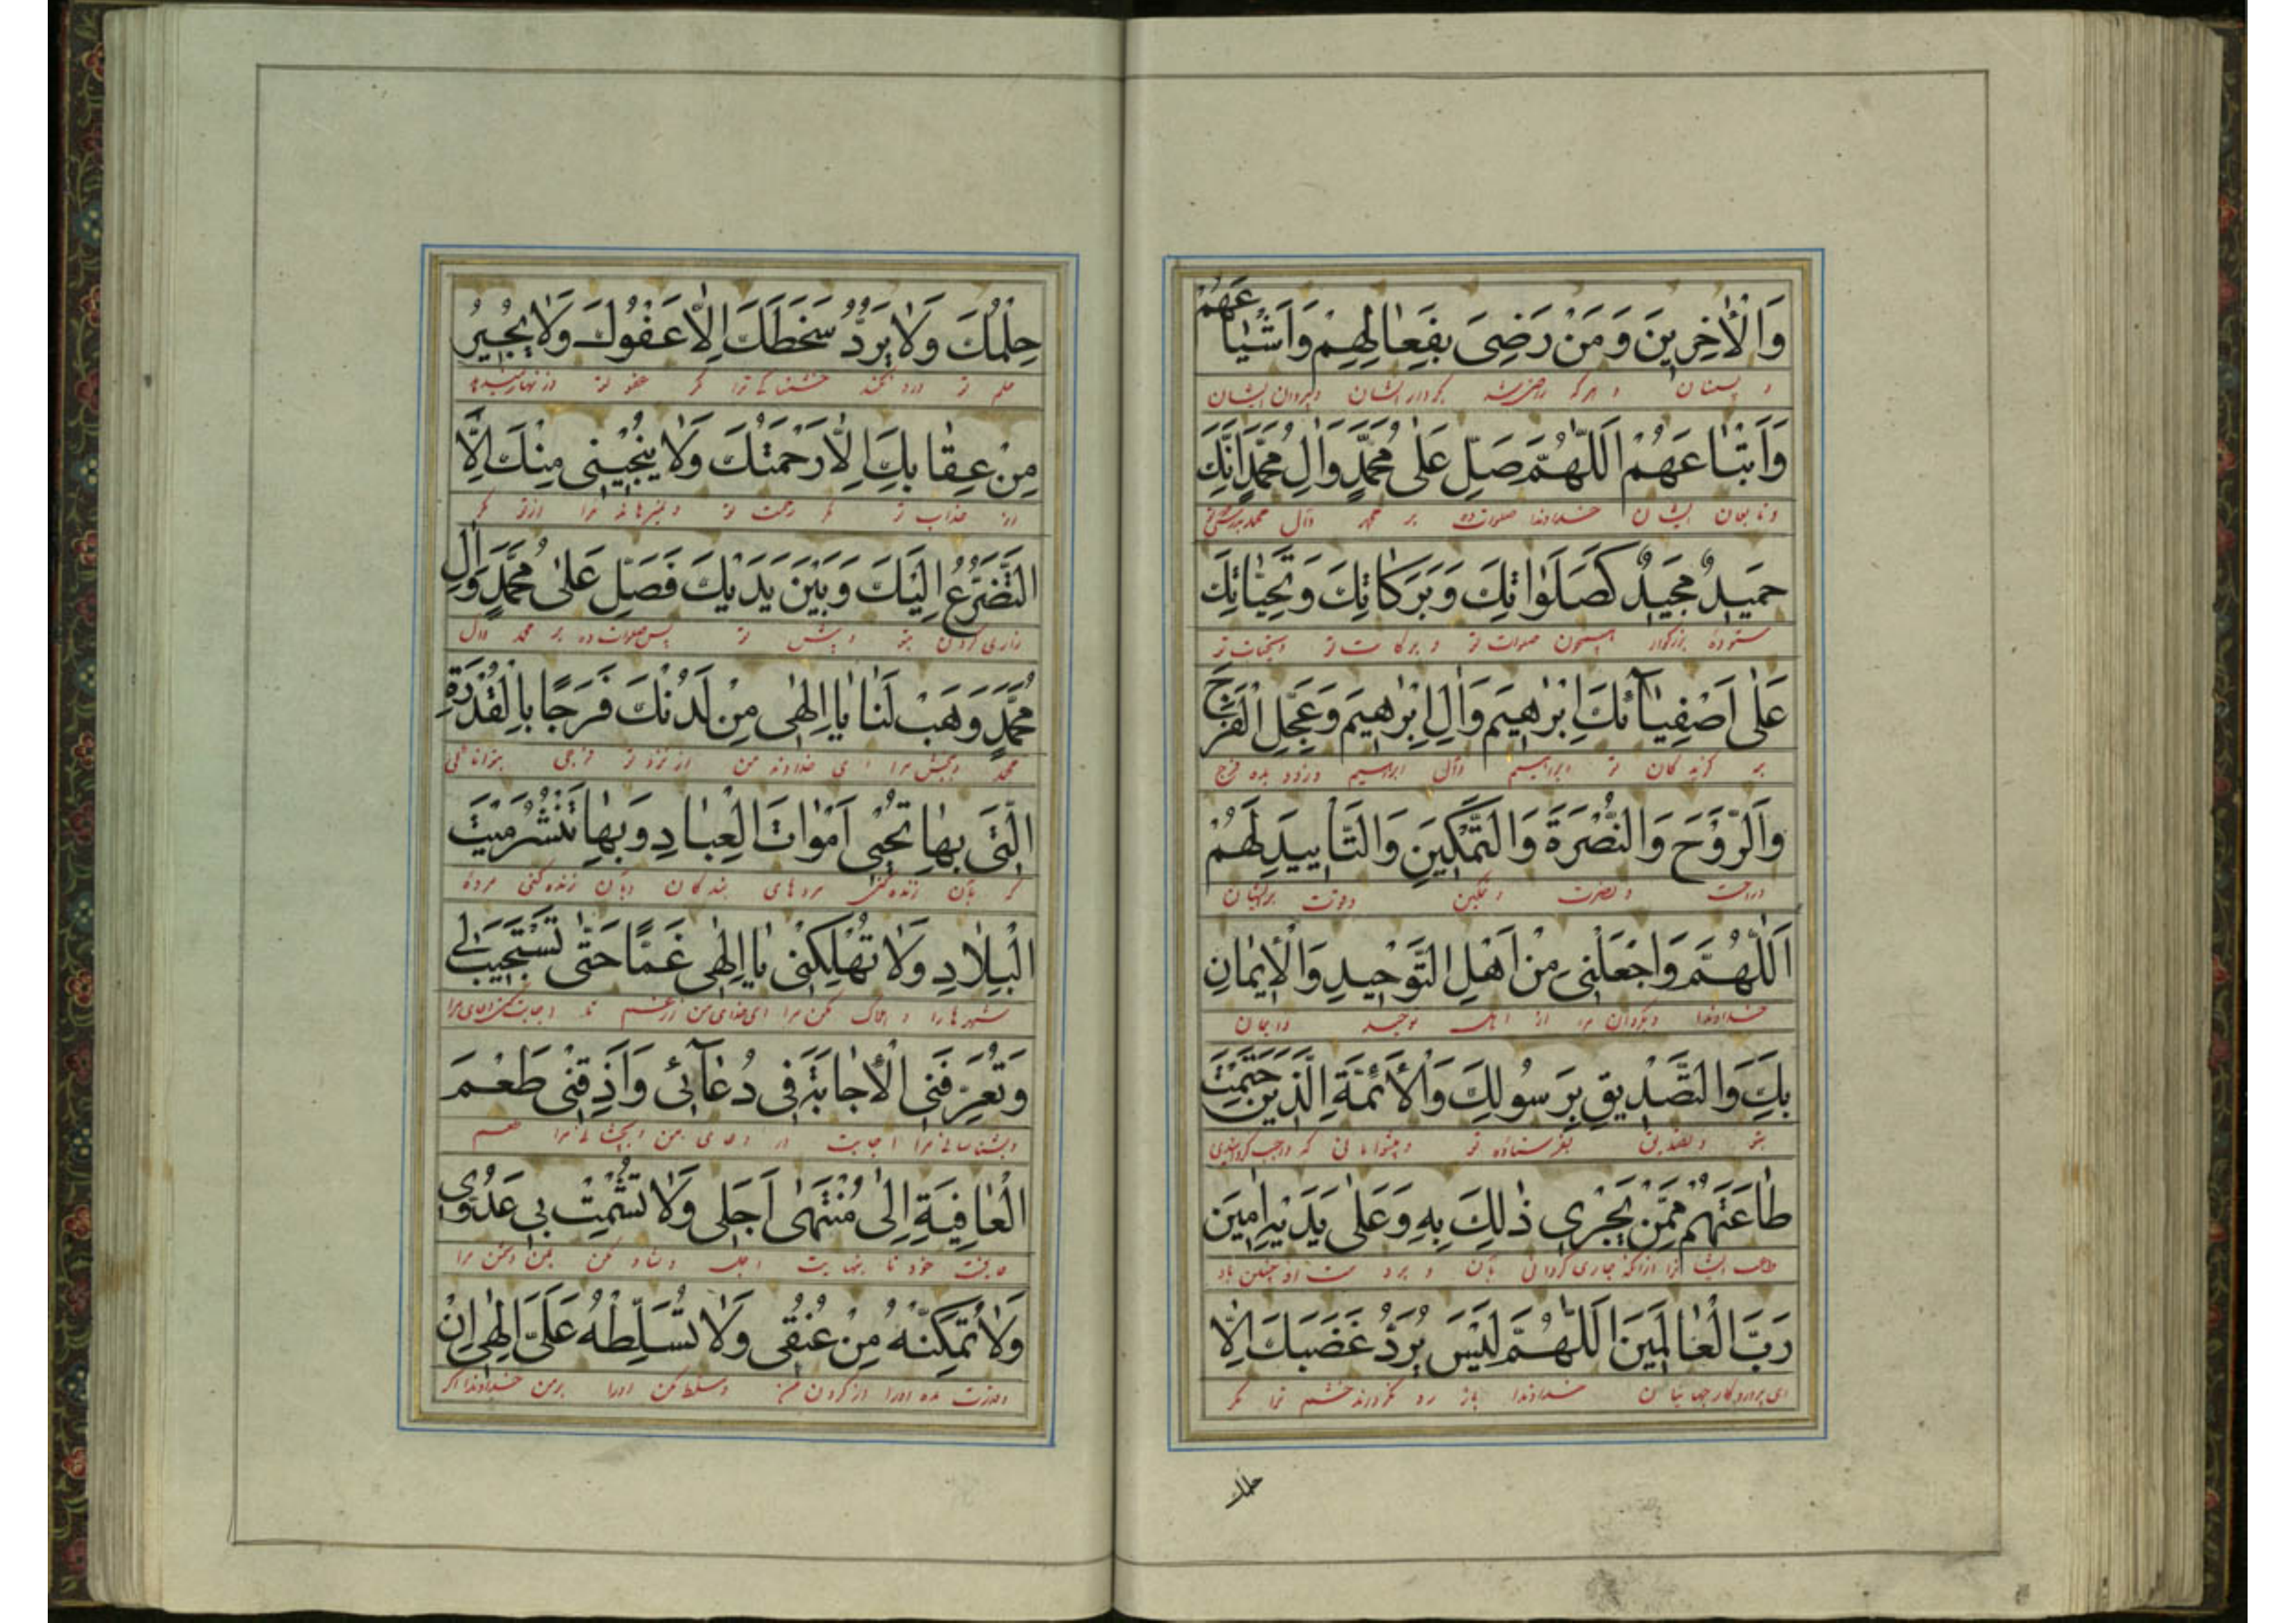 وَالْأٰخِرِينَ وَمَنْ رَضِىَ بِفَعٰالِهِمْ وَاَشْيٰاعَهُمْ
و پسینان و هر که راضی شد بکردار ایشان و پیروان ایشان
وَاَتْبٰاعَهُمْ اَللّٰهُمَّ صَلِّ عَلٰى مُحَمَّدٍ وَاٰلِ مُحَمَّدٍ اِنَّكَ
و تابعان ایشان خداوندا صلوات ده بر محمد وآل محمد بدرستی که تو
حَمِيدٌ مَجِيدٌ كَصَلَوٰاتِكَ وَبَرَكٰاتِكَ وَتَحِيّٰاتِكَ
ستوده بزرگوار همچون صلوات تو و برکات تو و تحیات تو
عَلٰى اَصْفِيٰآئِكَ اِبْرٰهِيمَ وَاٰلِ اِبْرٰهِيمَ وَعَجِّلِ الْفَرَجَ
بر گزیدگان تو ابراهیم وآل ابراهیم و زود بده فرج
وَالرَّوْحَ وَالنُّصْرَةَ وَالتَّمْكِينَ وَالتَّأْيِيدَ لَهُمْ
و راحت و نصرت و تمکین و قوت برایشان
اَللّٰهُمَّ وَاجْعَلْنِى مِنْ اَهْلِ التَّوْحِيدِ وَالْأِيمٰانِ
خداوندا و بگردان مرا از اهل توحید و ایمان
بِكَ وَالتَّصْدِيقِ بِرَسُولِكَ وَالْأَئِمَّةِ الَّذِينَ حَتَمْتَ
بتو و تصدیق بفرستاده تو و پیشوایانی که واجب گردانیدی
طٰاعَتَهُمْ مِمَّنْ يَجْرِى ذٰلِكَ بِهِ وَعَلٰى يَدَيْهِ اٰمِينَ
طاعت ایشانرا از آنکه جاری گردانی بآن و بر دست او چنین باد
رَبَّ الْعٰالَمِينَ اَللّٰهُمَّ لَيْسَ يُرَدُّ غَضَبَكَ اِلّٰا
ای پروردگار جهانیان خداوندا باز رد نگرداند خشم ترا مگر
حلمك
حِلْمُكَ وَلٰا يَرُدُّ سَخَطَكَ اِلّٰا عَفْوُكَ وَلٰا يُجِيرُ
حلم تو و رد نکند خشمناکی ترا مگر عفو تو و زنهار نمیدهد
مِنْ عِقٰابِكَ اِلّٰا رَحْمَتُكَ وَلٰا يُنْجِيْنِى مِنْكَ اِلَّا
از عذاب تو مگر رحمت تو و نمیرهاند مرا از تو مگر
التَّضَرُّعُ اِلَيْكَ وَبَيْنَ يَدَيْكَ فَصَلِّ عَلٰى مُحَمَّدٍ وَاٰلِ
زاری کردن بتو و پیش تو پس صلوات ده بر محمد وآل
مُحَمَّدٍ وَهَبْ لَنٰا يٰا اِلٰهِى مِنْ لَدُنْكَ فَرَجًا بِالْقُدْرَةِ
محمد و ببخش مرا ای خداوند من از نزد تو فرجی بتوانائی
الَّتِى بِهٰا تُحْيِى اَمْوٰاتَ الْعِبٰادِ وَبِهٰا تَنْشُرُ مَيْتَ
که بآن زنده کنی مردهای بندگان و بآن زنده کنی مردۀ
الْبِلٰادِ وَلٰا تُهْلِكْنِى يٰا اِلٰهِى غَمًّا حَتّٰى تَسْتَجِيبَ لِى
شهرها را و هلاک مکن مرا ای خدای من از غم تا اجابت کنی دعای مرا
وَتُعَرِّفَنِى الْأِجٰابَةَ فِى دُعٰآئِى وَاَذِقْنِى طَعْمَ
و بشناسانی مرا اجابت در دعای من و بچشانی مرا طعم
الْعٰافِيَةِ اِلٰى مُنْتَهٰى اَجَلِى وَلٰا تُشْمِتْ بِى عَدُوِّى
عافیت خود تا نهایت اجل و شاد مکن بمن دشمن مرا
وَلٰا تُمَكِّنْهُ مِنْ عُنُقِى وَلٰا تُسَلِّطْهُ عَلَىَّ اِلٰهِى اِنْ
و قدرت مده او را از گردن من و مسلط مکن او را بر من خداوندا اگر